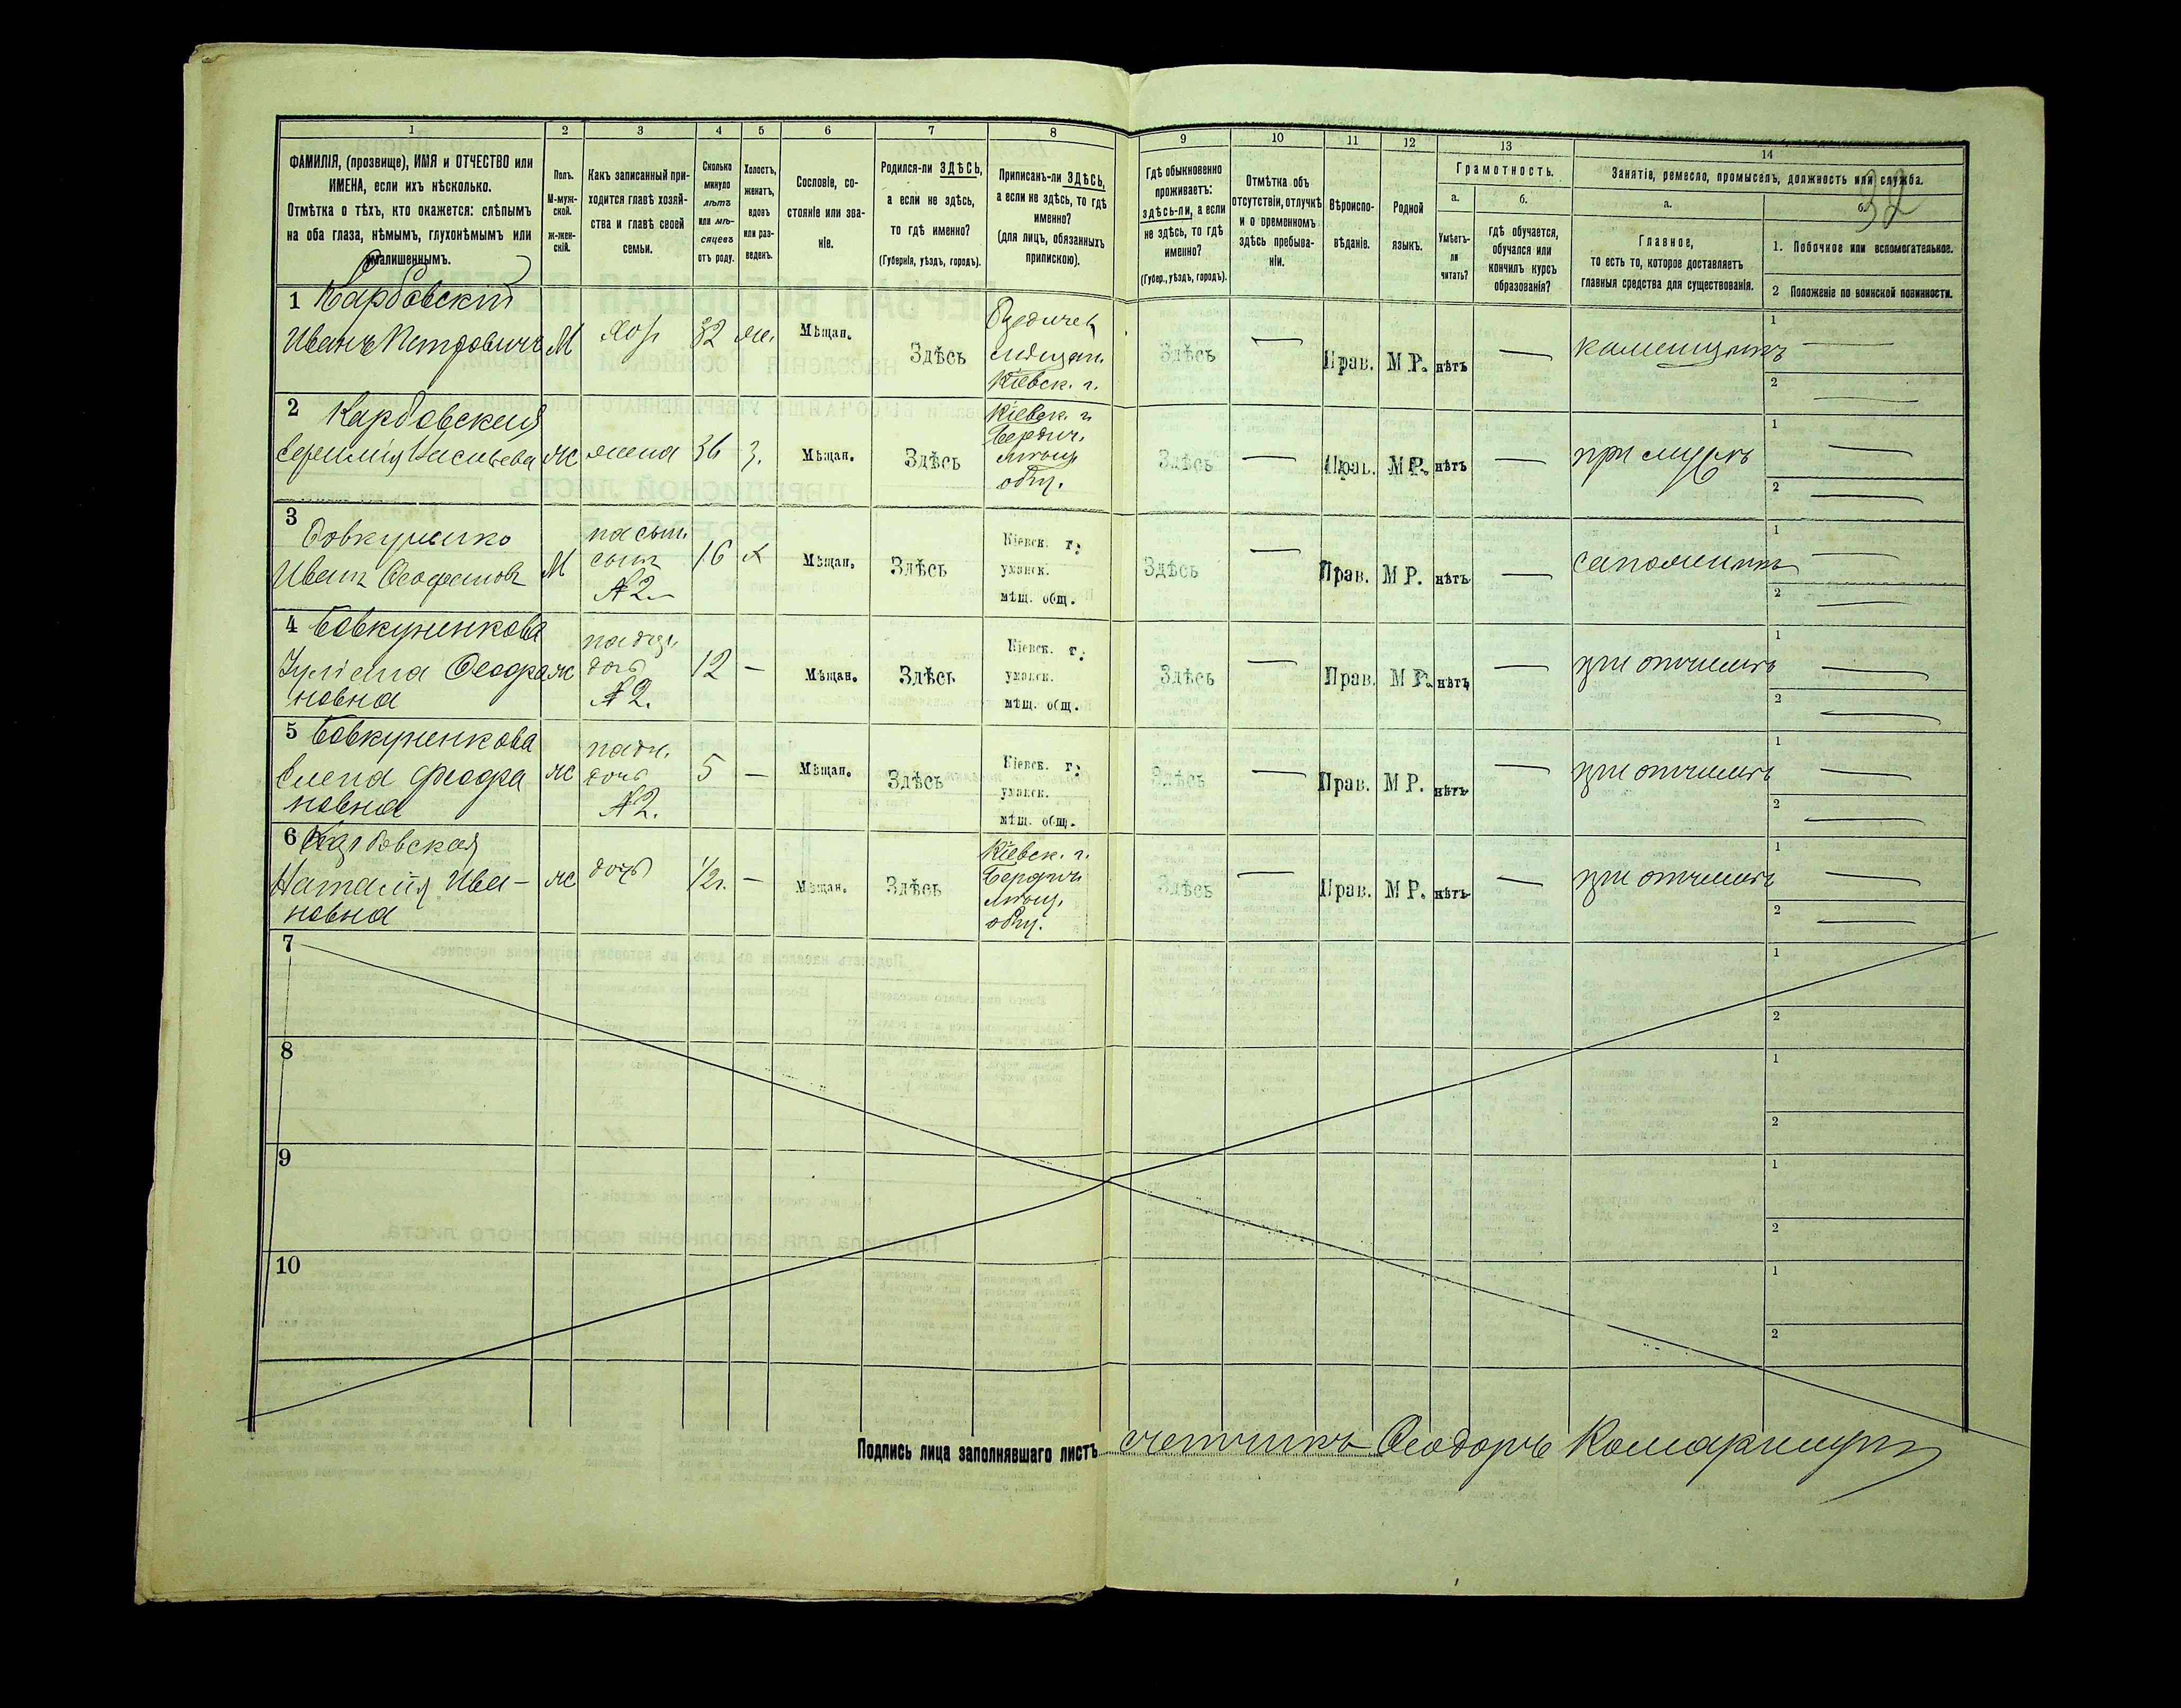 32
1 2 3 4 5 6 7 8 9 10 11 12 13 14
ФАМИЛІЯ, (прозвище), ИМЯ и ОТЧЕСТВО или
ИМЕНА, если ихъ нѣсколько.
Отмѣтка о тѣхъ, кто окажется: слѣпымъ
на оба глаза, нѣмымъ, глухонѣмымъ или
умалишеннымъ.
Полъ.
М-муж-
ской.
ж-жен-
скій.
Какъ записанный при-
ходится главѣ хозяй-
ства и главѣ своей
семьи.
Сколько
минуло
лѣтъ
или мѣ-
сяцевъ
отъ роду.
Холостъ,
женатъ,
вдовъ
или раз-
веденъ.
Сословіе, со-
стояніе или зва-
ніе.
Родился-ли ЗДѢСЬ,
а если не здѣсь,
то гдѣ именно?
(Губернія, уѣздъ, городъ).
Приписанъ-ли ЗДѢСЬ,
а если не здѣсь, то гдѣ
именно?
(для лицъ, обязанныхъ
припискою).
Гдѣ обыкновенно
проживаетъ:
здѣсь-ли, а если
не здѣсь, то гдѣ
именно?
(Губер., уѣздъ, городъ).
Отмѣтка объ
отсутствіи, отлучкѣ
и о временномъ
здѣсь пребыва-
ніи.
Вѣроиспо-
вѣданіе.
Родной
языкъ.
Грамотность.
а.
Умѣетъ-
ли
читать?
б.
гдѣ обучается,
обучался или
кончилъ курсъ
образованія?
Занятіе, ремесло, промыселъ, должность или служба.
а.
Главное,
то есть то, которое доставляетъ
главныя средства для существованія.
б.
1. Побочное или вспомогательное.
2 Положеніе по воинской повинности.
1 Карбовскій
Иванъ Петровичъ М хоз 32 же. Мѣщан. Здѣсь
Кіевск. г.
Здѣсь — Прав. М Р. нѣтъ — каменщикъ
1 —
2 —
2 Карбовская
Васильева ж жена 36 З. Мѣщан. Здѣсь
Кіевск. г.
Бердич.
мѣщ.
общ.
Здѣсь — Прав. М Р. нѣтъ — при мужѣ
1 —
2 —
3
Иванъ Ѳеофановъ М
сынъ
№ 2.
16 х Мѣщан. Здѣсь
Кіевск. г.
уманск.
мѣщ. общ.
Здѣсь — Прав. М Р. нѣтъ — сапожникъ
1 —
2 —
4 Бовкуненкова
Ѳеофа
новна ж
дочь
№ 2.
12 — Мѣщан. Здѣсь
Кіевск. г.
уманск.
мѣщ. общ.
Здѣсь — Прав. М Р. нѣтъ — при отчимѣ
1 —
2 —
5 Бовкуненкова
Елена Феофа
новна ж
падч.
дочь
№ 2.
5 — Мѣщан. Здѣсь
Кіевск. г.
уманск.
мѣщ. общ.
Здѣсь — Прав. М Р. нѣтъ — при отчимѣ
1 —
2 —
6 Карбовская
Наталія Ива-
новна ж дочь 1/2 г. — Мѣщан. Здѣсь
Кіевск. г.
Бердич
мѣщ.
общ.
Здѣсь — Прав. М Р. нѣтъ — при отчимѣ
1 —
2 —
7
1
2
8
1
2
9
1
2
10
1
2
Подпись лица заполнявшаго листъ счетчикъ Ѳеодоръ